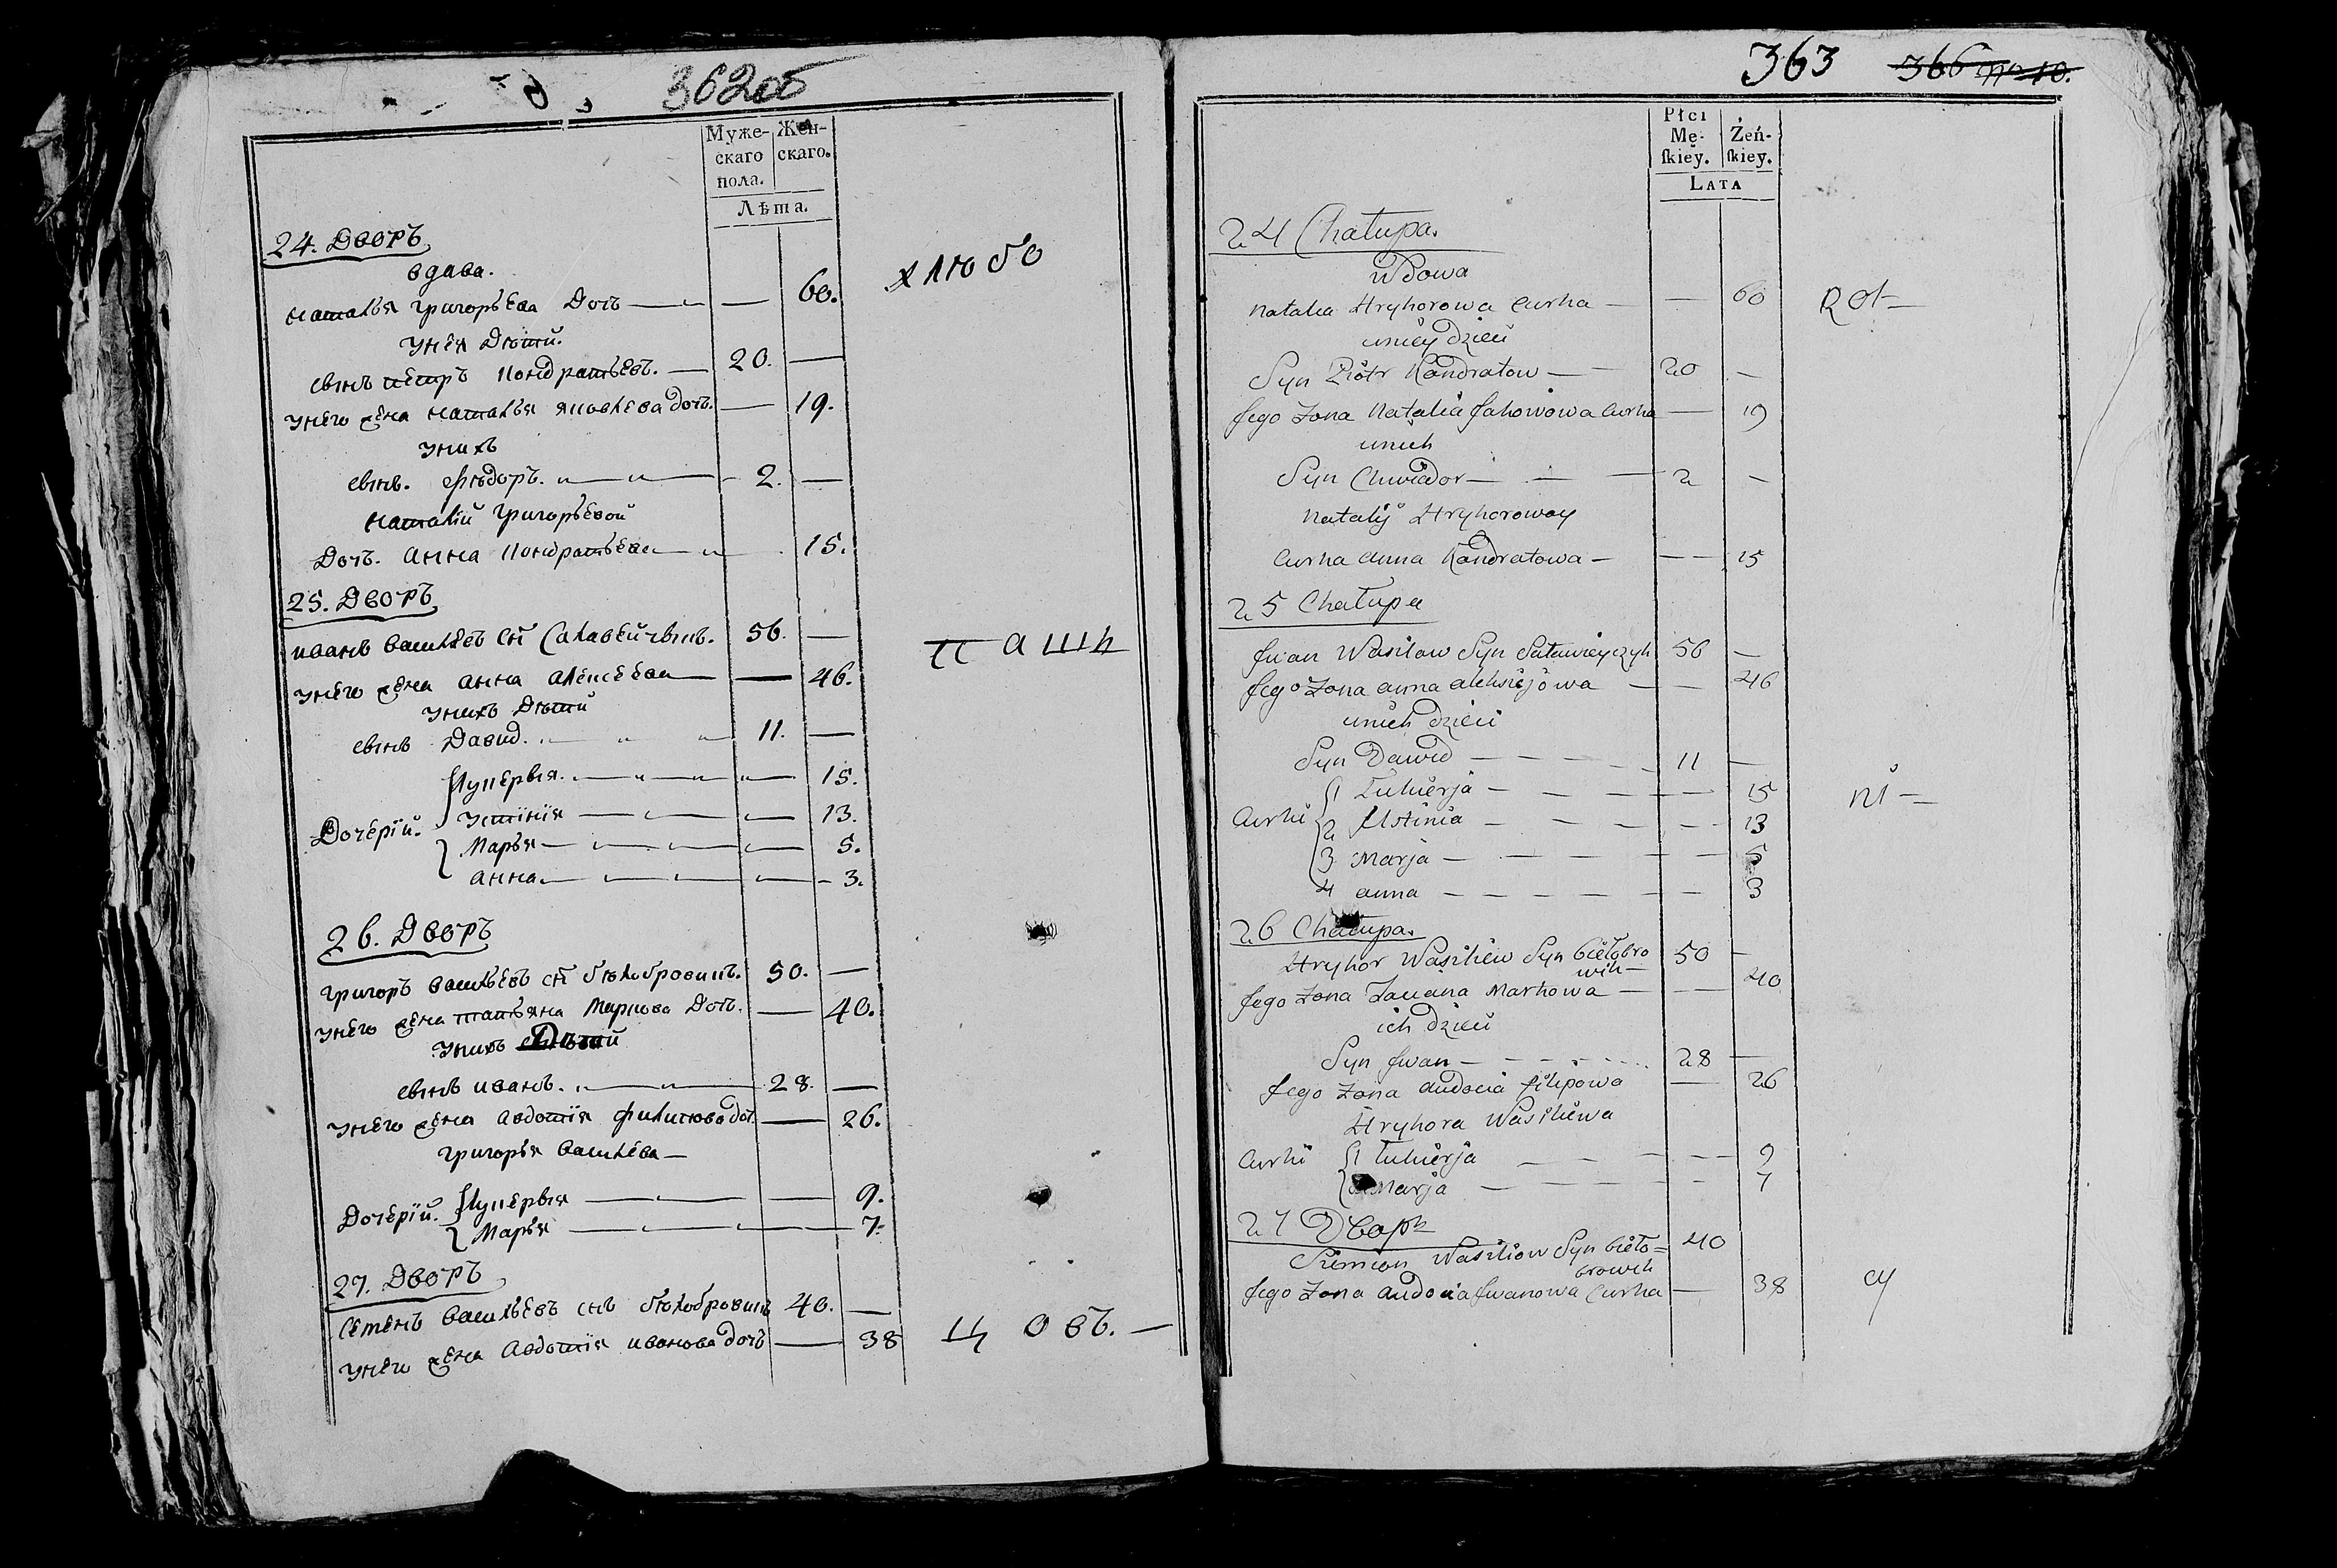 362об
Муже- Жен-
скаго скаго.
пола.
Лѣта.
24. Дворъ
вдава.
наталья григорьева Дочь — — 60.
унея Дѣтй.
сынъ пётръ кондратьевъ. — 20. —
унего жена наталья яковлева дочь. — 19.
унихъ
сынъ. фѣдоръ. 2. —
наталій григорьевой
Дочь. анна кондратьева 15.
25. Дворъ
иванъ васильевъ сн Салавейчыкъ. 56. —
унего жена анна алексеева — 46.
унихъ Дѣтй
сынъ Давид. 11. —
Дочерїй. Лукерья. 15.
Устінія 13.
Марья 5.
анна 3.
26. Дворъ
григоръ васильевъ сн бѣлобровикъ. 50. —
унего жена татьяна Маркова Дочь. — 40.
унихъ Дѣтй
сынъ иванъ. 28. —
унего жена авдотія филипова доч. — 26.
григорья васильева —
Дочерїй. Лукерья 9.
Марья 7.
27. Дворъ
Семенъ васильевъ снъ бѣлобровикъ 40. —
унего жена авдотія иванова дочь — 38
хлюбо
паши
цовъ. —
363 366 10.
Płci
Mę- Żeń-
ſkiey. ſkiey.
LATA
24 Chałupa.
wdowa
Natalia Hryhorowa Curka — — 60
uniey dzieci
Syn Piotr Kondratow — 20 —
Jego Zona Natalia Jakowowa Curka — 19
unich
Syn Chwiador — 2 —
Natalij Hryhorowoy
Curka anna Kondratowa — — 15
25 Chałupa
Jwan Wasilow Syn Saławieyczyk 56 —
Jego Zona anna aleksiejowa — 46
unich dzieci
Syn Dawid — 11 —
Curki 1 Łukierja — 15
2 Ustinia — 13
3 Marja — 5
4 anna — 3
26 Chałupa.
Hryhor Wasiliew Syn białobro 50 —
wik —
Jego Zona Taciana Markowa — 40
ich dzieci
Syn Jwan — 28 —
Jego Zona audocia filipowa — 26
Hryhora Wasiliewa
Curki 1 Łukierja — 9
2 Marja — 7
27 Дворъ
Siemion Wasiliow Syn biało= 40
browik
Jego Zona audocia Jwanowa Curka — 38